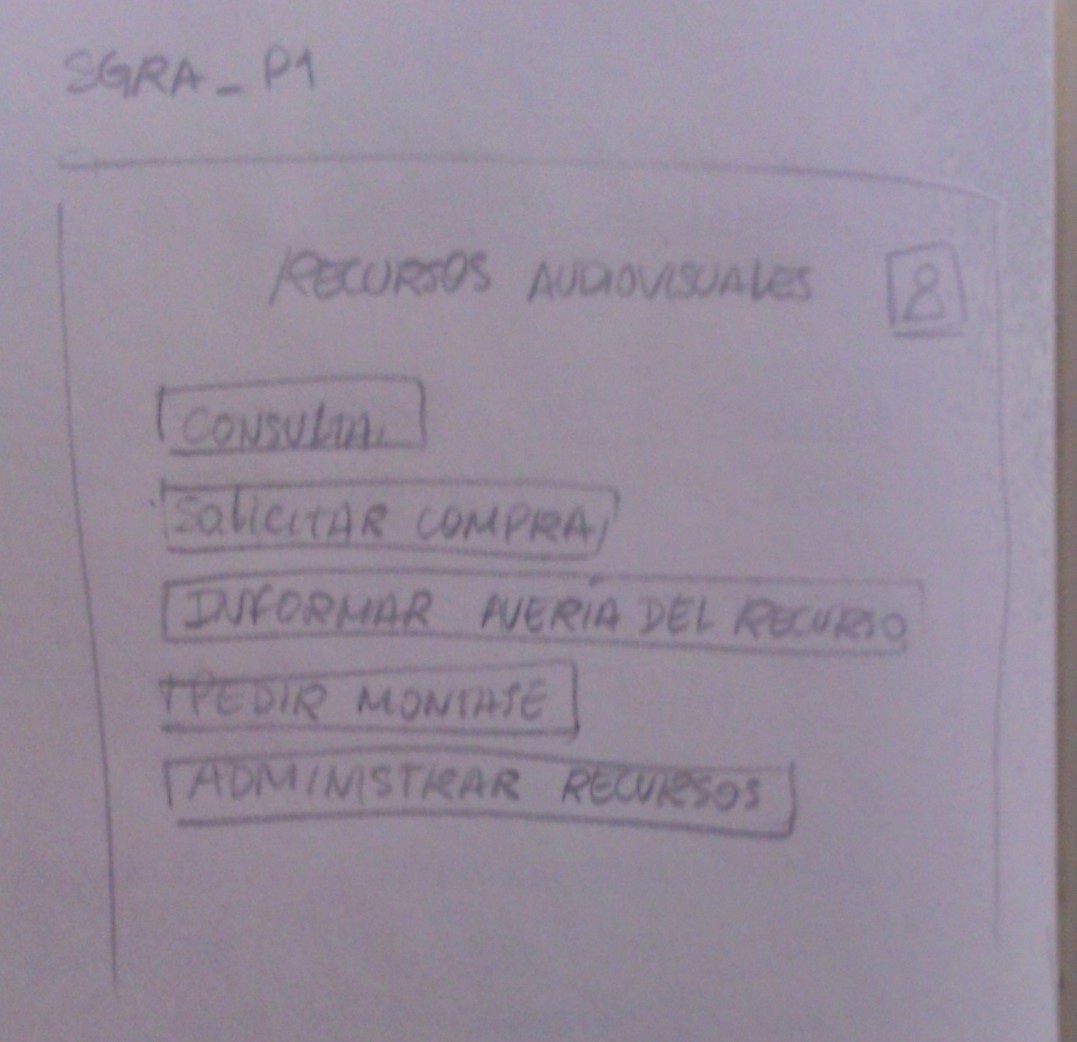 SGRA_P1
RECURSOS AUDIOVISUALES
CONSULTA
SOLICITAR COMPRA
INFORMAR AVERÍA DEL RECURSO
PEDIR MONTAJE
ADMINISTRAR RECURSOS